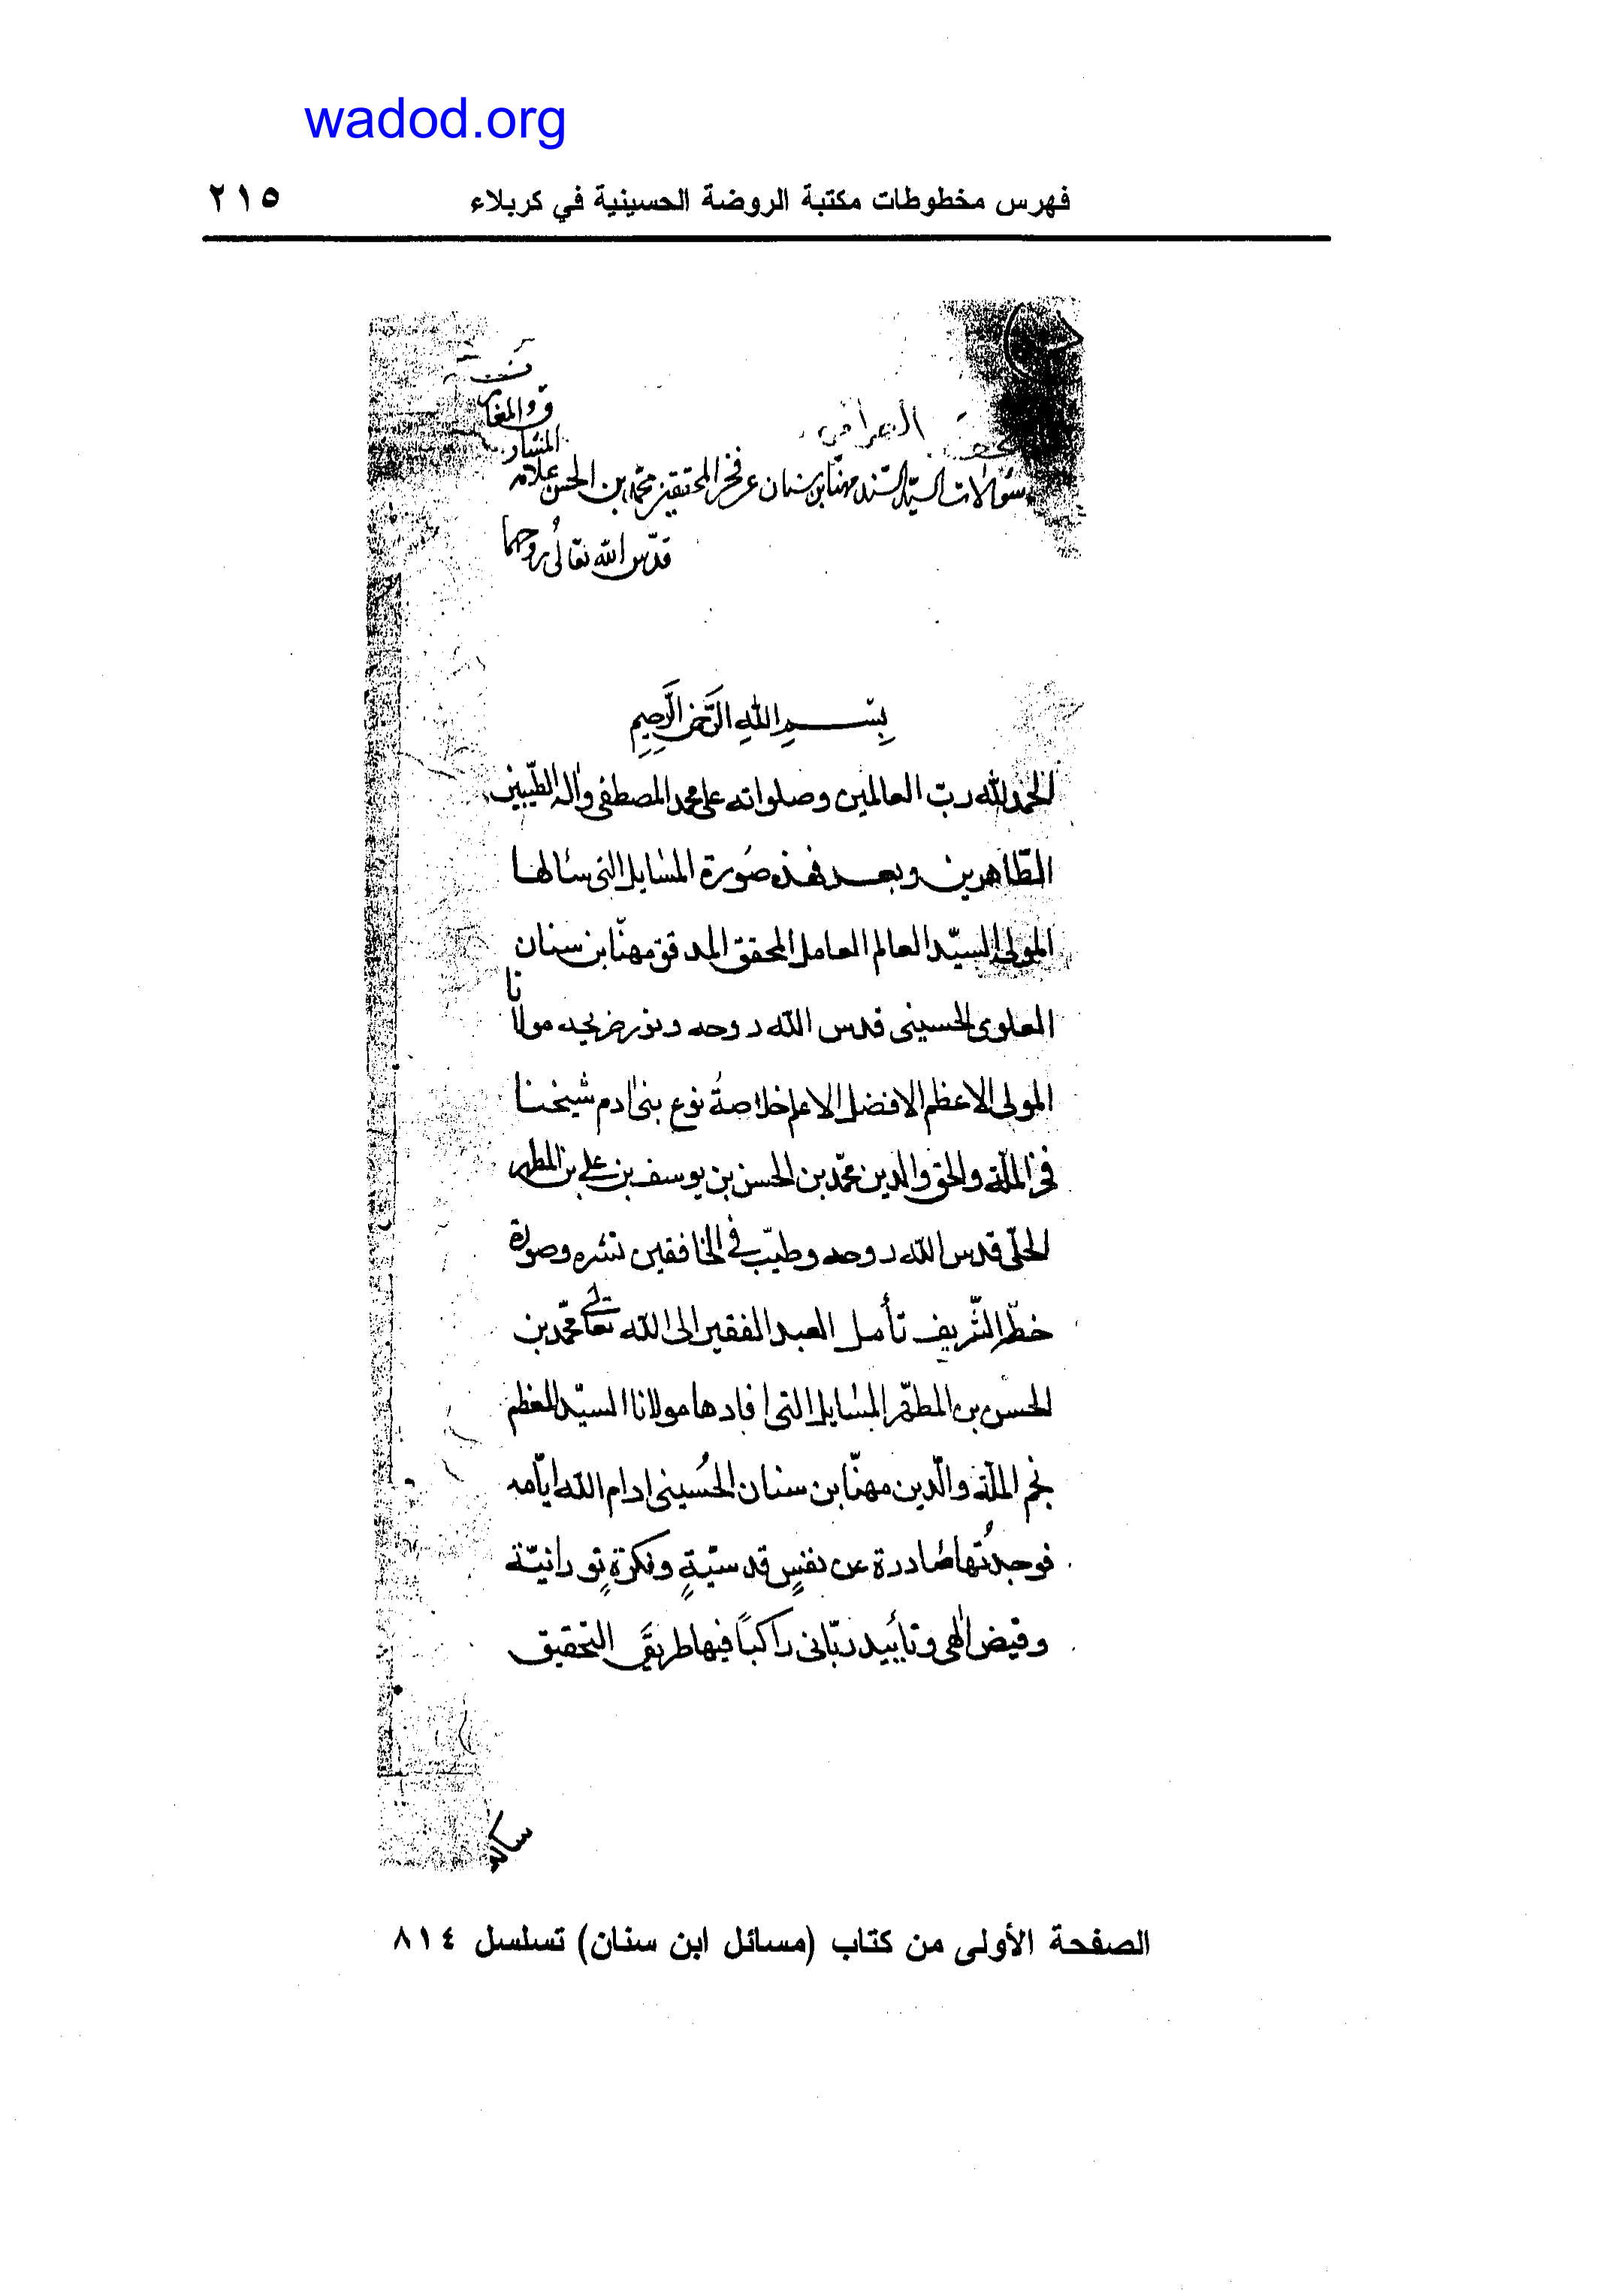 wadod.org
فهرس مخطوطات مكتبة الروضة الحسينية في كربلاء ٢١٥
سؤالات السيّد السّند مهنّا بن سنان عن فخر المحققين محمّد بن الحسن علامه
قدّس الله تعالى روحهما
بِسْمِ اللهِ الرَّحمنِ الرَّحِيمِ
الحمد لله ربّ العالمين وصلواته على محمد المصطفى وآله الطّيبين
الطّاهرين وبعد فهذه صُورة المسايل التى سالها
المولى السيّد العالم العامل المحقق المدقق مهنّا بن سنان
العلوى الحسينى قدس الله روحه ونور ضريحه مولانا
المولى الاعظم الافضل الاعلم خلاصةُ نوع بنى ادم شيخنا
فخر الملّة والحق والدين محمّد بن الحسن بن يوسف بن على بن المطهر
الحلّى قدس الله روحه وطيّب في الخافقين نشره وصورة
خطّه الشّريف تأمل العبد الفقير الى الله تعالى محمّد بن
الحسن بن المطهّر المسايل التى افادها مولانا السيّد المعظم
نجم الملّة والدّين مهنّا بن سنان الحُسينى ادام الله ايّامه
فوجدتُها صادرة عن نفسٍ قدسيّةٍ وفكرةٍ نورانيّة
وفيض الٰهى وتأييد ربّانى راكباً فيها طريقَ التحقيق
سالكا
الصفحة الأولى من كتاب (مسائل ابن سنان) تسلسل ٨١٤